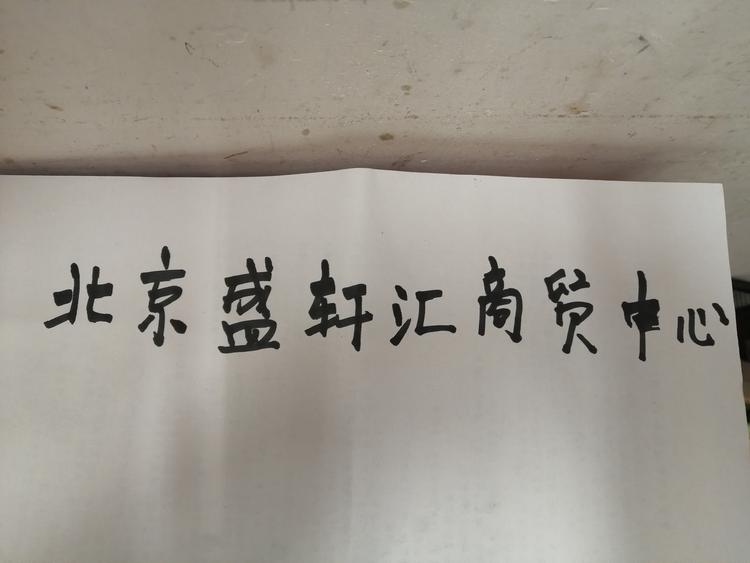 北京盛轩汇商贸中心